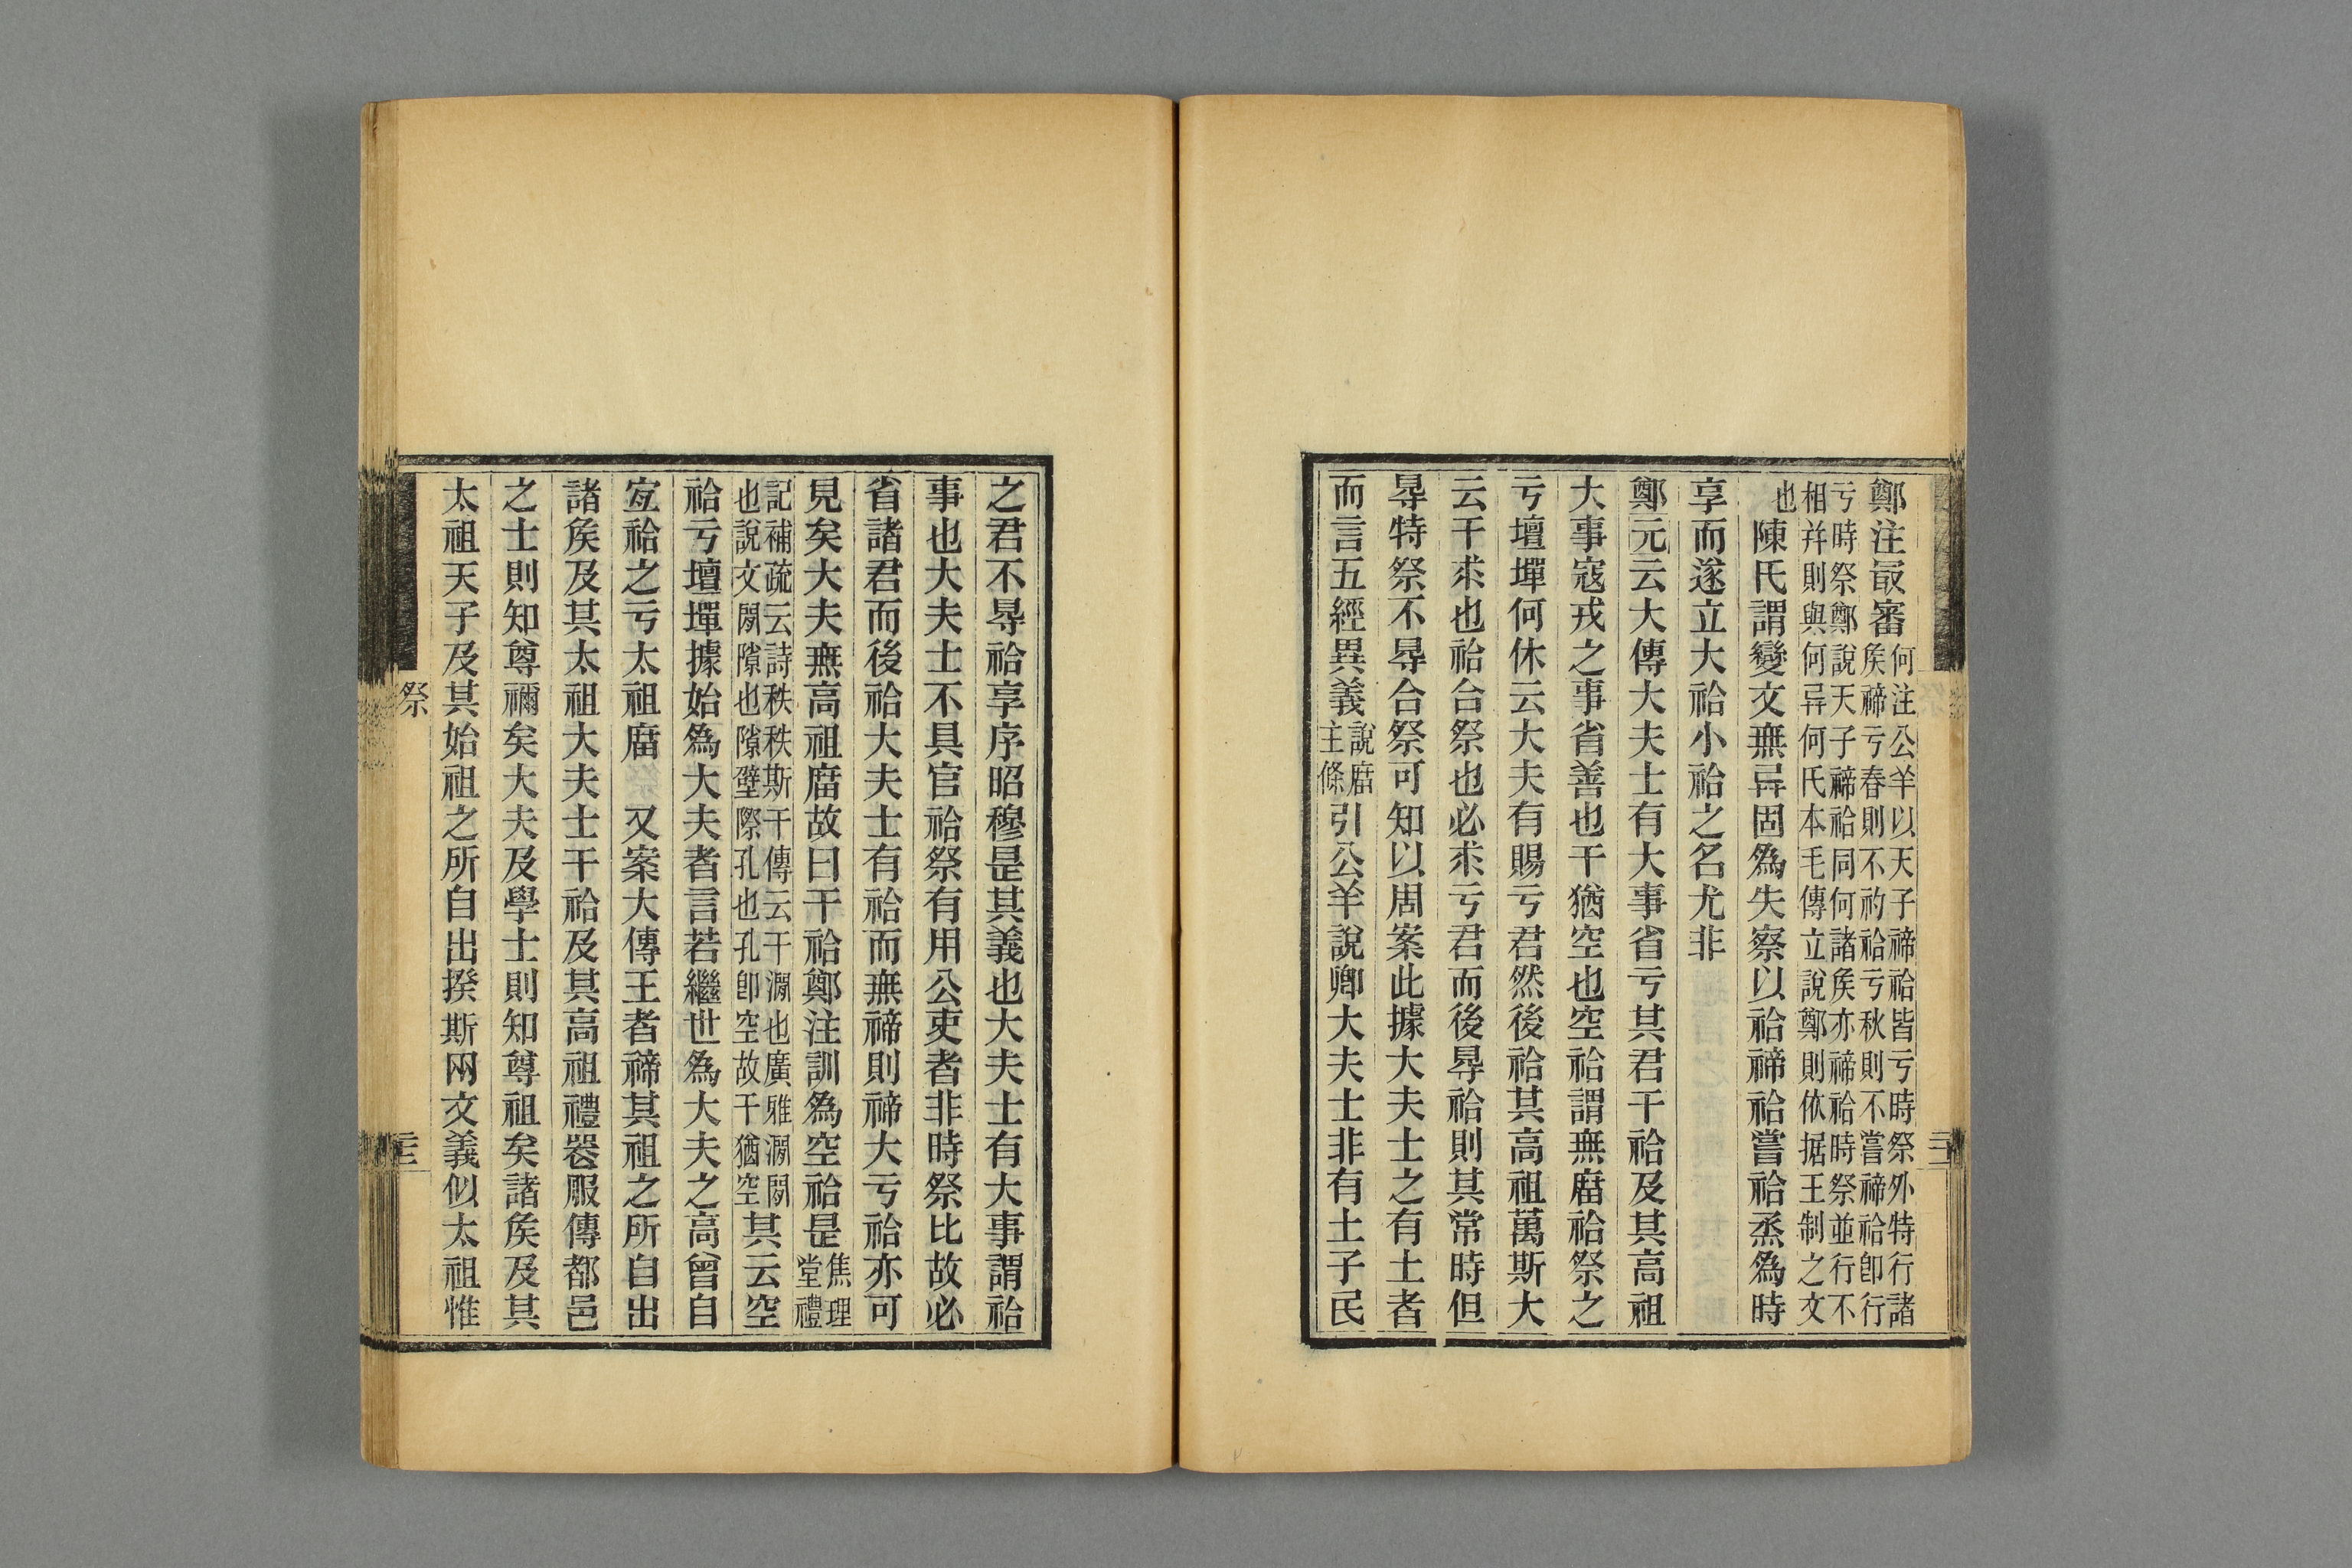 鄭注冣審何注公羊以天子禘祫皆亏時祭外特行諸
矦禘亏春則不礿祫亏秋則不嘗禘祫卽行
亏時祭鄭說天子禘祫同何諸矦亦禘祫時祭並行不
相幷則與何异何氏本毛傳立說鄭則依据王制之文
也陳氏謂變文無异固爲失察以祫禘祫嘗祫烝爲時
享而遂立大祫小祫之名尤非
鄭元云大傳大夫士有大事省亏其君干祫及其高祖
大事寇戎之事省善也干猶空也空祫謂無庿祫祭之
亏壇墠何休云大夫有賜亏君然後祫其高祖萬斯大
云干求也祫合祭也必求亏君而後㝵祫則其常時但
㝵特祭不㝵合祭可知以周案此據大夫士之有土者
而言五經異義說庿主條引公羊說卿大夫士非有土子民
之君不㝵祫享序昭穆是其義也大夫士有大事謂祫
事也大夫士不具官祫祭有用公吏者非時祭比故必
省諸君而後祫大夫士有祫而無禘則禘大亏祫亦可
見矣大夫無高祖庿故曰干祫鄭注訓爲空祫是焦理堂禮
記補疏云詩秩秩斯干傳云干澗也廣雅澗閒
也說文閒隙也隙壁際孔也孔卽空故干猶空其云空
祫亏壇墠據始爲大夫者言若繼世爲大夫之高曾自
宐祫之亏太祖庿　又案大傳王者禘其祖之所自出
諸矦及其太祖大夫士干祫及其高祖禮器服傳都邑
之士則知尊禰矣大夫及學士則知尊祖矣諸矦及其
太祖天子及其始祖之所自出揆斯兩文義似太祖惟
祭
三十二